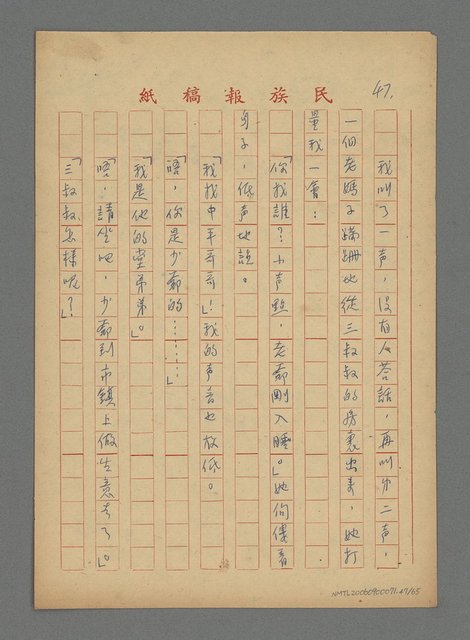 47.
民族報稿紙
我叫了一声，沒有人答話，再叫第二声，
一個老媽子蹣跚地從三叔叔的房裏出來，她打
量我一會：
「你找誰？小声點，老爺剛入睡。」她佝僂着
身子，低声地說。
「我找中平哥哥！」我的声音也放低。
「唔，你是少爺的………」
「我是他的堂弟弟。」
「唔，請坐吧，少爺到市鎮上做生意去了。」
「三叔叔怎樣呢？」
NMTL20060900071.47/65